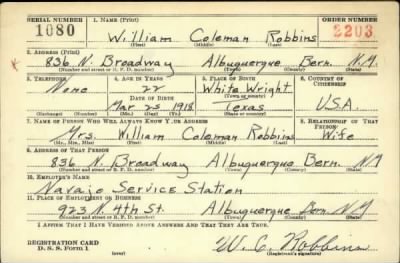 SERIAL NUMBER 1. NAME (Print) ORDER NUMBER
1080 William Coleman Robbins 2203
(First) (Middle) (Last)
2. ADDRESS (Print)
836 N. Broadway Albuquerque Bern. N.M.
(Number and street or R. F. D. number) (Town) (County) (State)
3. TELEPHONE 4. AGE IN YEARS 5. PLACE OF BIRTH 6. COUNTRY OF CITIZENSHIP
None 22 White Wright
DATE OF BIRTH (Town or county)
Mar 25 1918 Texas U.S.A.
(Mo.) (Day) (Yr.) (State or country)
7. NAME OF PERSON WHO WILL ALWAYS KNOW YOUR ADDRESS 8. RELATIONSHIP OF THAT PERSON
Mrs. William Coleman Robbins Wife
(Mr., Mrs., Miss) (First) (Middle) (Last)
9. ADDRESS OF THAT PERSON
836 N. Broadway Albuquerque Bern. NM
(Number and street or R. F. D. number) (Town) (County) (State)
10. EMPLOYER'S NAME
Navajo Service Station
11. PLACE OF EMPLOYMENT OR BUSINESS
923 N. 4th St. Albuquerque Bern. NM
(Number and street or R. F. D. number) (Town) (County) (State)
I AFFIRM THAT I HAVE VERIFIED ABOVE ANSWERS AND THAT THEY ARE TRUE.
REGISTRATION CARD
D. S. S. Form 1 (over) W. C. Robbins
(Registrant's signature)